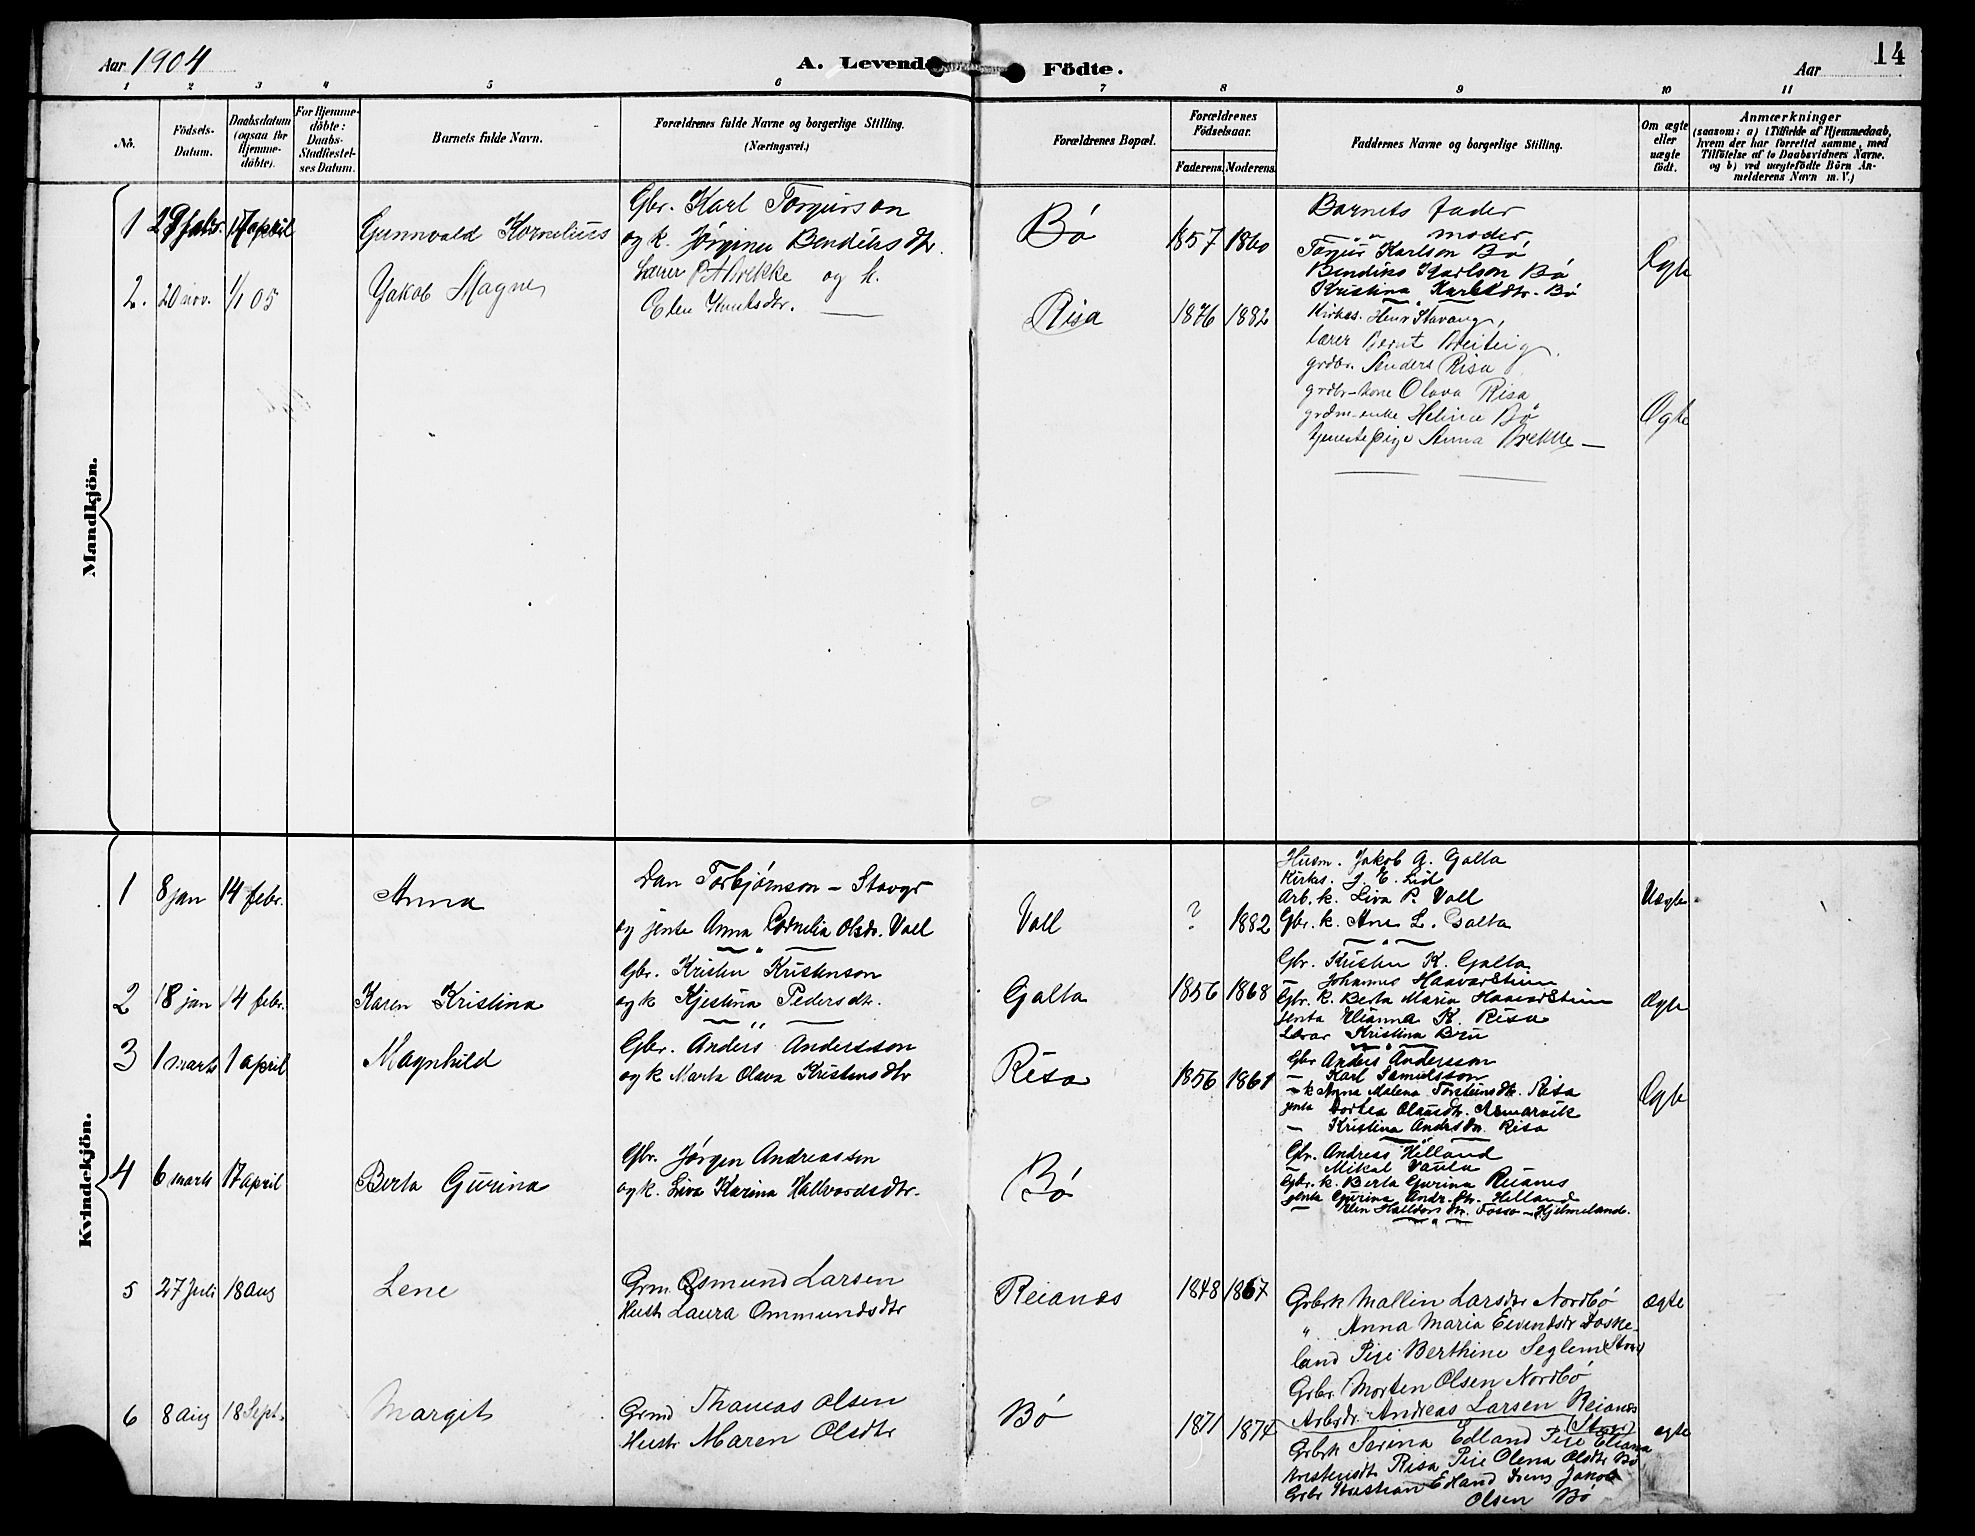 Aar 1904
A. Levende Födte.
Aar
14
1 2 3 4 5 6 7 8 9 10 11
No.
Födsels-Datum.
Daabsdatum (ogsaa for Hjemme-döbte).
For Hjemme-döbte: Daabs-Stadfæstel-ses Datum.
Barnets fulde Navn.
Forældrenes fulde Navne og borgerlige Stilling.
(Næringsvei.)
Forældrenes Bopæl.
Forældrenes Födselsaar.
Faderens. Moderens.
Faddernes Navne og borgerlige Stilling.
Om ægte eller uægte födt.
Anmærkninger
(saasom: a) i Tilfælde af Hjemmedaab,
hvem der har forrettet samme, med
Tilföielse af to Daabsvidners Navne.
og b) ved uægtefödte Börn An-
melderens Navn m. V.)
Mandkjön.
1 29 febr. 17 april Gunnvald Kornelius
Gbr. Karl Torgurson
og k. Jørgine Bendiksdtr.
Bø 1857 1860
Barnets fader
" " moder
Torgur Karlson Bø
Bendiks Karlson Bø
Kristina Karlsdtr. Bø
Ægte
2. 20 nov. 1/1 05 Jakob Magne
Lærer Brekke og h.
Elen Knutsdtr.
Risa 1876 1882
Kirkes. Henr Stavang,
lærer Bernt
grdbr. Anders Risa
grdbr-kone Olava Risa
grdm-enke Helina Bø
tjenestepige Anna Brekke
Ægte
Kvindekjön.
1 8 jan 14 febr. Anna
Dan Torbjørnson - Stavgr
og jente Anna Cornelia Olsdr. Vall
Vall ? 1882
Husm. Jakob G. Galta
Kirkes. J. E. Lid
Arb. k. Liva P. Vall
Gbr. k. Ane L. Galta
Uægte
2 18 jan 14 febr. Karen Kristina
Gbr. Kristen Kristenson
og k Kjestina Pedersdtr.
Galta 1856 1868
Gbr. Kristen K. Galta
— Johannes Haavarstein
Gbr. k. Berta Maria Haavarstein
jenta Elianna K. Risa
Lærar Kristina Bru
ægte
3 1 marts 1 april Magnhild
Gbr. Anders Andersson
og k Marta Olava Kristensdtr
Risa 1856 1861
Gbr Anders Andersson
— Karl Samuelsson
— k Anna Malena Torsteinsdtr. Risa
jenta Dortea Olausdtr. Asmarvik
— Kristina Andersdtr. Risa
Ægte
4 6 marts 17 april Berta Gurina
Gbr. Jørgen Andreassen
og k. Liva Karina Hallvardsdtr.
Bø
Gbr. Andreas Helland
— Mikal Vaula
Gbr. k. Berta Gurina Reianes
jenta Gurina Andr. dtr. Helland
— Elin Halldorsdtr. Fosso - Hjelmeland.
5 27 Juli 18 Aug Lene
Grm. Osmund Larsen
Hustr Laura Ommundsdtr
Reianes 1848 1867
Grbrk Mallin Larsdtr Nordbø
" Anna Maria Eivendsdr Foske-
land Pige Berthine Seglem (Stav)
Grbr. Morten Olsen Nordbø
Arbdr. Andreas Larsen Reianes
(Stav)
ægte
6 8 Aug 18 Sept. Margit
Grmd Thomas Olsen
Hustr Maren Olsdtr
Bø 1871 1874
Grbrk Serina Edland Pige Eliana
Kristensdtr Risa Pige Olena Olsdtr Bø
Grbr Kristian Edland Dreng Jakob
Olsen Bø
ægte